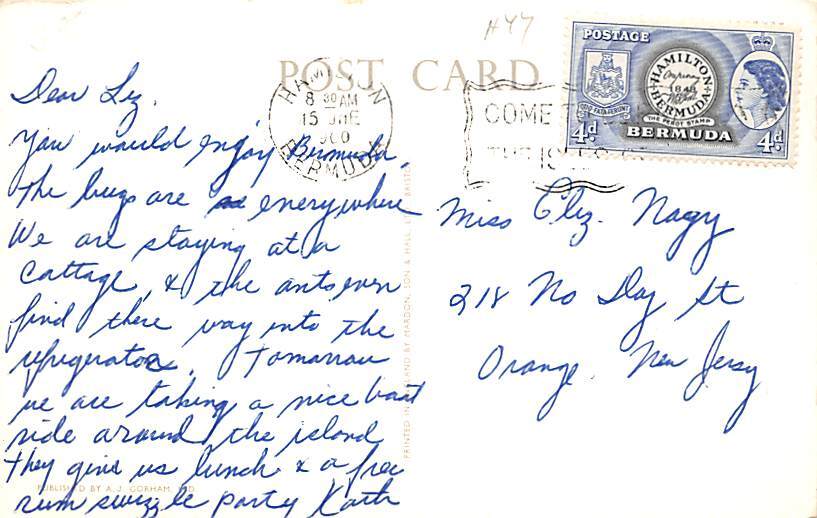 H47
POST CARD
POSTAGE
HAMILTON
1848
BERMUDA
THE PEROT STAMP
BERMUDA
4d. 4d.
HAMILTON
8 30 AM
15 JNE
BERMUDA
COME
THE ISLES
Dear Liz.
You would enjoy Bermuda.
The bugs are everywhere
We are staying at a
Cottage, & the ants even
find there way into the
refrigerator. Tomarrow
we are taking a nice boat
ride around the island
They give us lunch & a free
rum swizzle party Kath
Miss Eliz. Nagy
218 No Day St
Orange. New Jersy
PUBLISHED BY A.J. GORHAM, LTD.